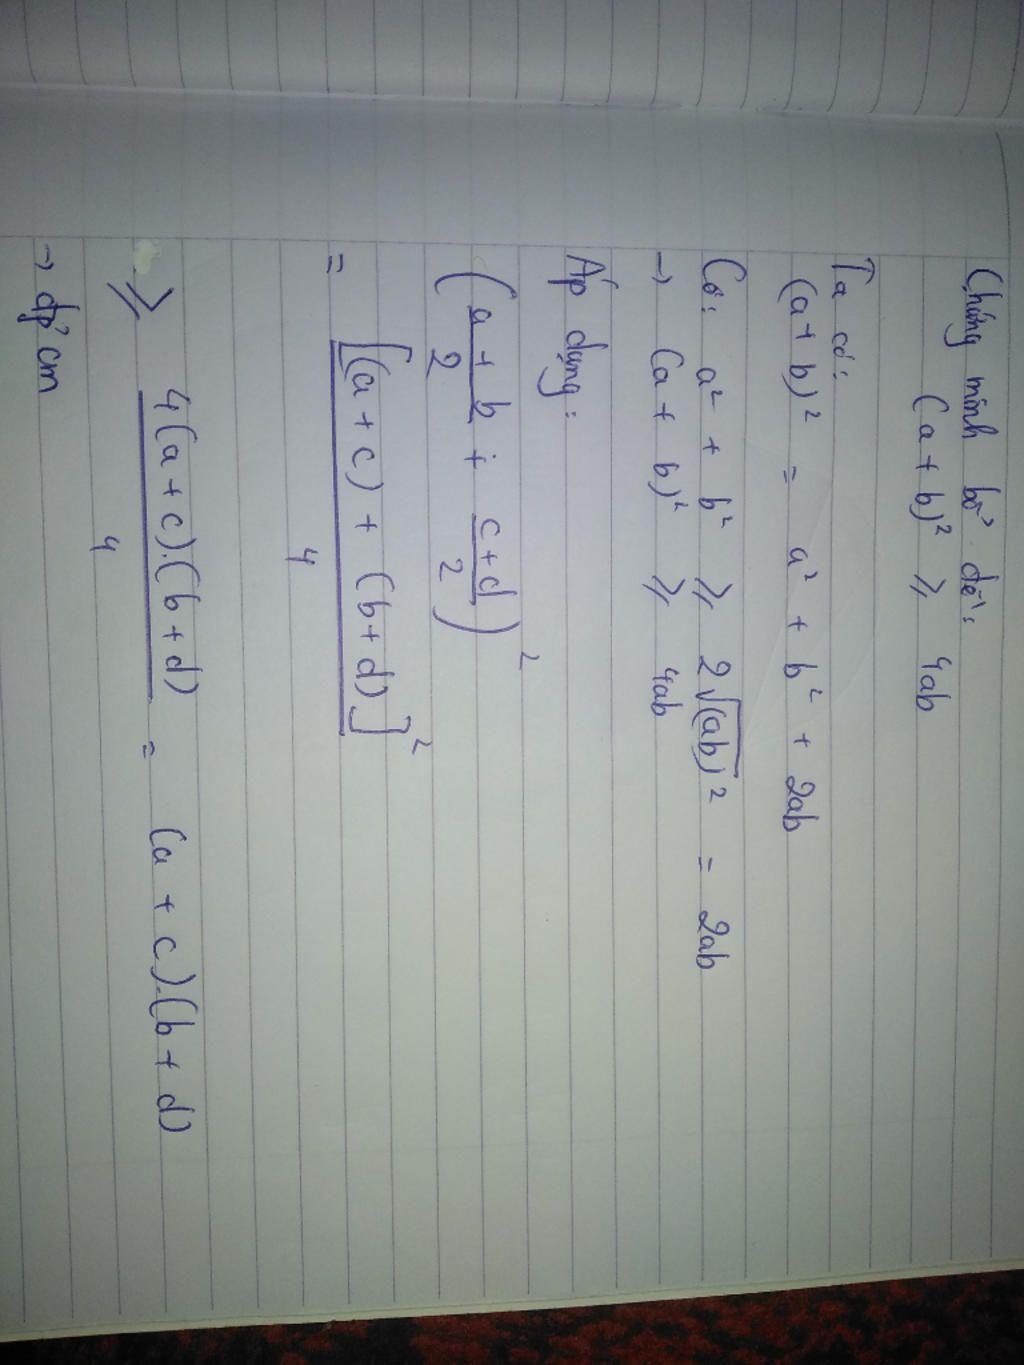 Chứng minh bổ đề:
(a + b)² ≥ 4ab
Ta có:
(a + b)² = a² + b² + 2ab
Có: a² + b² ≥ 2√(ab)² = 2ab
→ (a + b)² ≥ 4ab
Áp dụng:
(a + b/2 + c+d/2)²
= [(a + c) + (b + d)]²/4
≥ 4(a + c).(b + d)/4 = (a + c).(b + d)
→ đp'cm